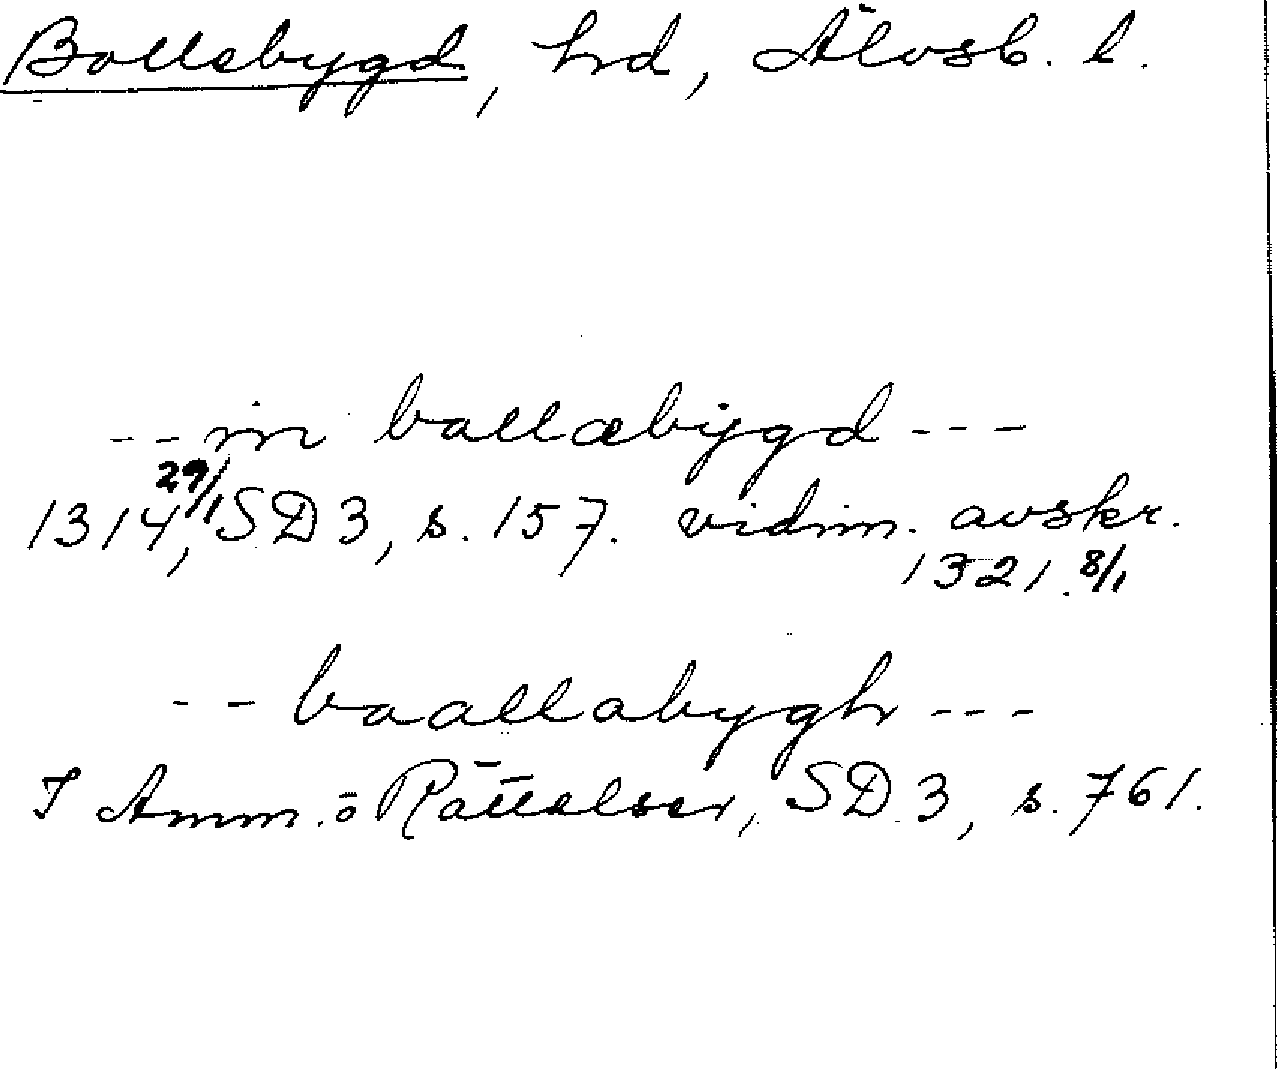 Bollebygd, hd, Älvsb. l.
--in ballæbÿgd---
1314 29/1, SD 3, s. 157. vidim. avskr.
1321. 8/1
--baallabygh---
I Anm. o Rättelser, SD 3, s. 761.